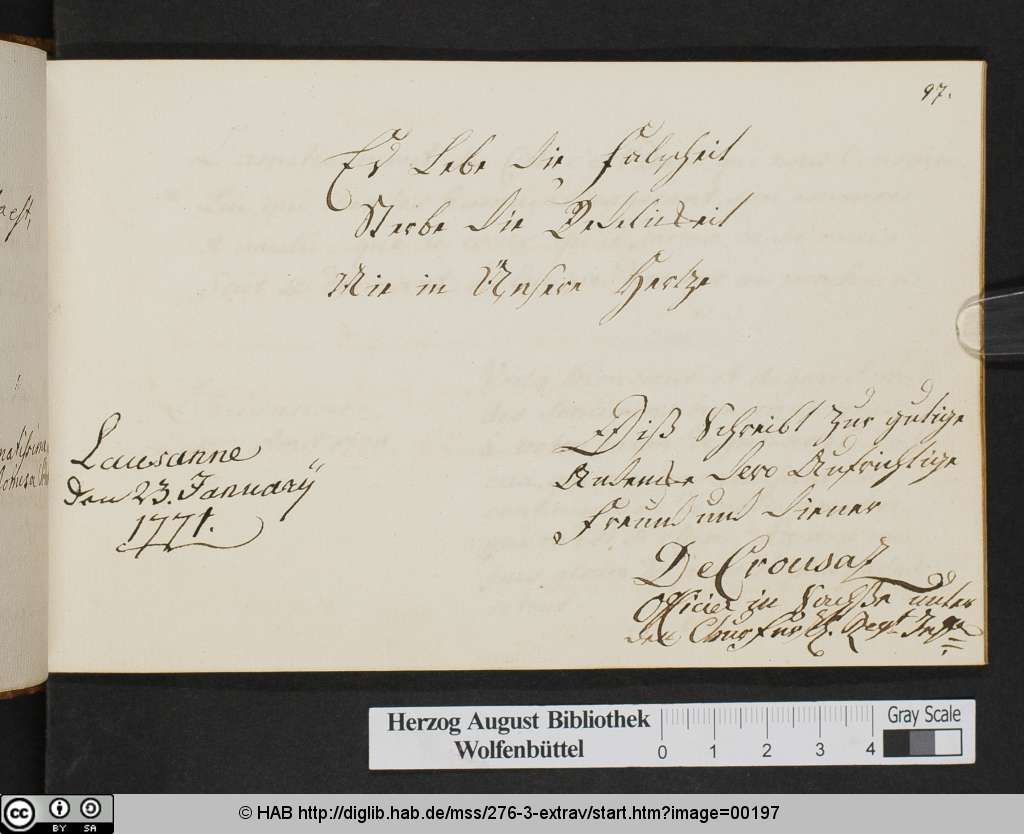 97.
Es Lebe die Falscheit
Sterbe die Redlichkeit
Nie in Unsere Hertze
Lausanne
den 23. January
1771.
Diß Schreibt zur gutige
Andencke dero Aufrichtige
Freund und diener
DeCrousaz
Officier in Sachße unter
den Churfürstl. Regt. Inf.
aest,
Herzog August Bibliothek
Wolfenbüttel
0 1 2 3 4
Gray Scale
cc BY SA
© HAB http://diglib.hab.de/mss/276-3-extrav/start.htm?image=00197